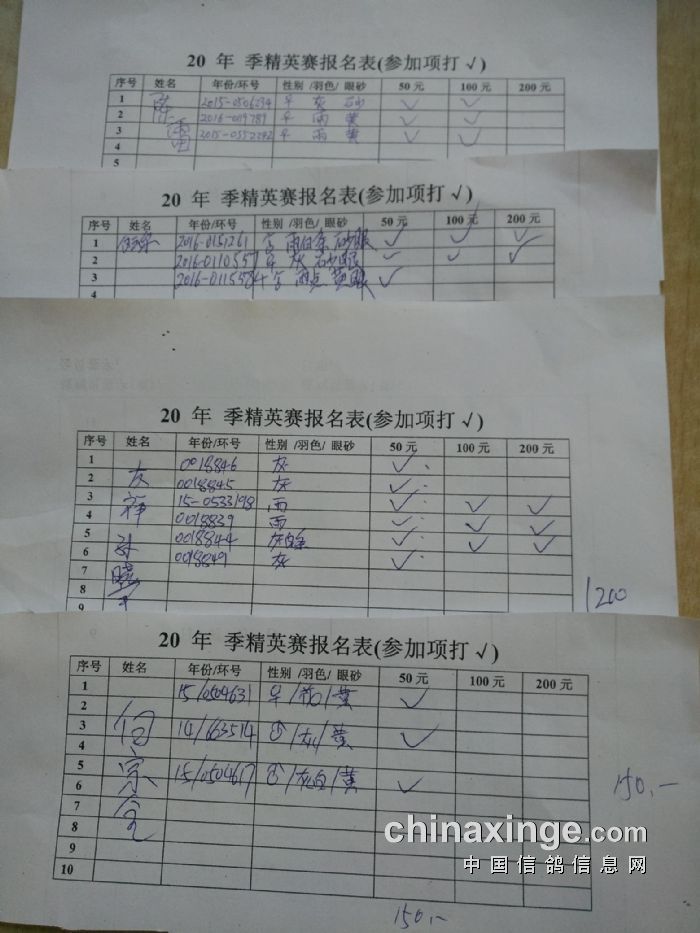 20 年 季精英赛报名表(参加项打 √)
序号 姓名 年份/环号 性别 /羽色/ 眼砂 50 元 100 元 200 元
1 陈 2015-0506234 ♀ 灰 砂 √ √
2 2016-0119789 ♀ 雨 黄 √ √
3 雷 2015-0552242 ♀ 雨 黄 √ √
4
5
20 年 季精英赛报名表(参加项打 √)
序号 姓名 年份/环号 性别 /羽色/ 眼砂 50 元 100 元 200 元
1 2016-0151261 雨白条 砂眼 √ √ √
2 2016-0110557 灰 砂眼 √ √ √
3 2016-0115584 雨点 黄眼 √
4
20 年 季精英赛报名表(参加项打 √)
序号 姓名 年份/环号 性别 /羽色/ 眼砂 50 元 100 元 200 元
1 0018846 灰 √
2 友 0018845 灰 √
3 祥 15-0533198 雨 √ √ √
4 0018839 雨 √ √ √
5 孙 0018844 灰白条 √ √ √
6 0018849 灰 √
7 晓
8 平
9
1200
20 年 季精英赛报名表(参加项打 √)
序号 姓名 年份/环号 性别 /羽色/ 眼砂 50 元 100 元 200 元
1 15/0504631 ♀/花/黄 √
2
3 何 14/663514 灰/黄 √
4
5 宗 15/0504617 灰白/黄 √
6
7 全
8
9
10
150.-
150.-
chinaxinge.com
中国信鸽信息网